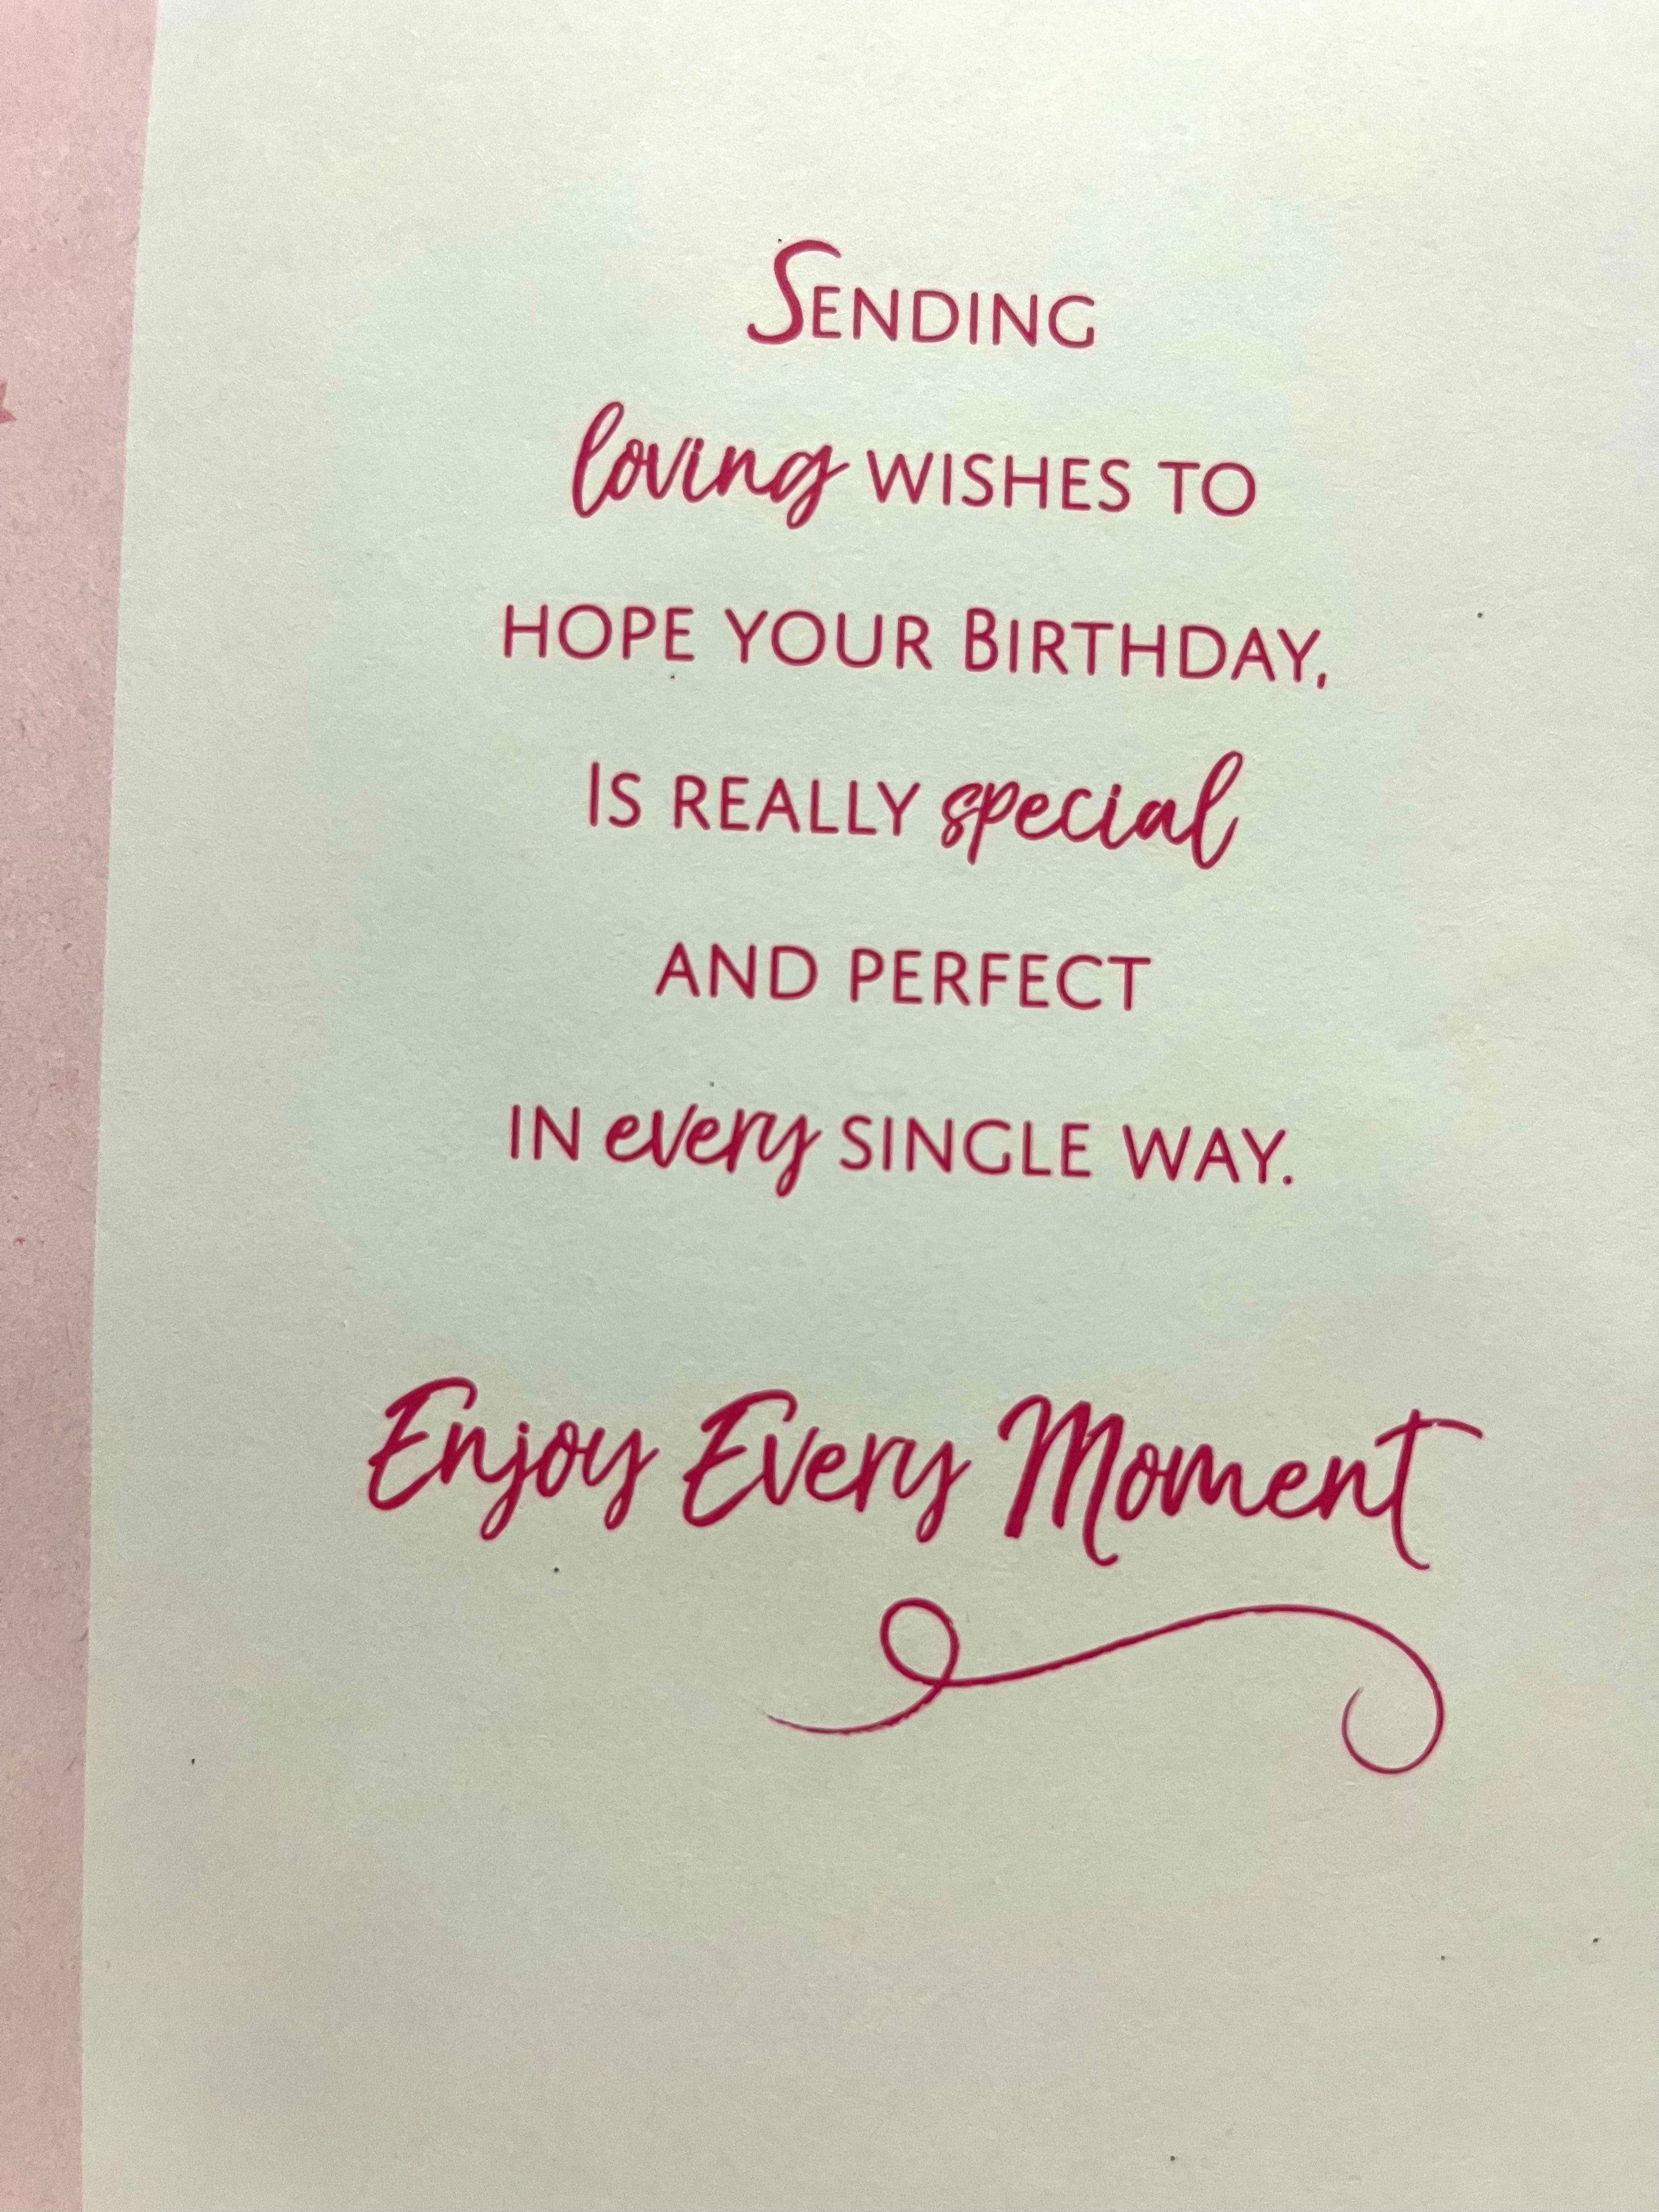 SENDING
loving WISHES TO
HOPE YOUR BIRTHDAY,
IS REALLY special
AND PERFECT
IN every SINGLE WAY.
Enjoy Every Moment